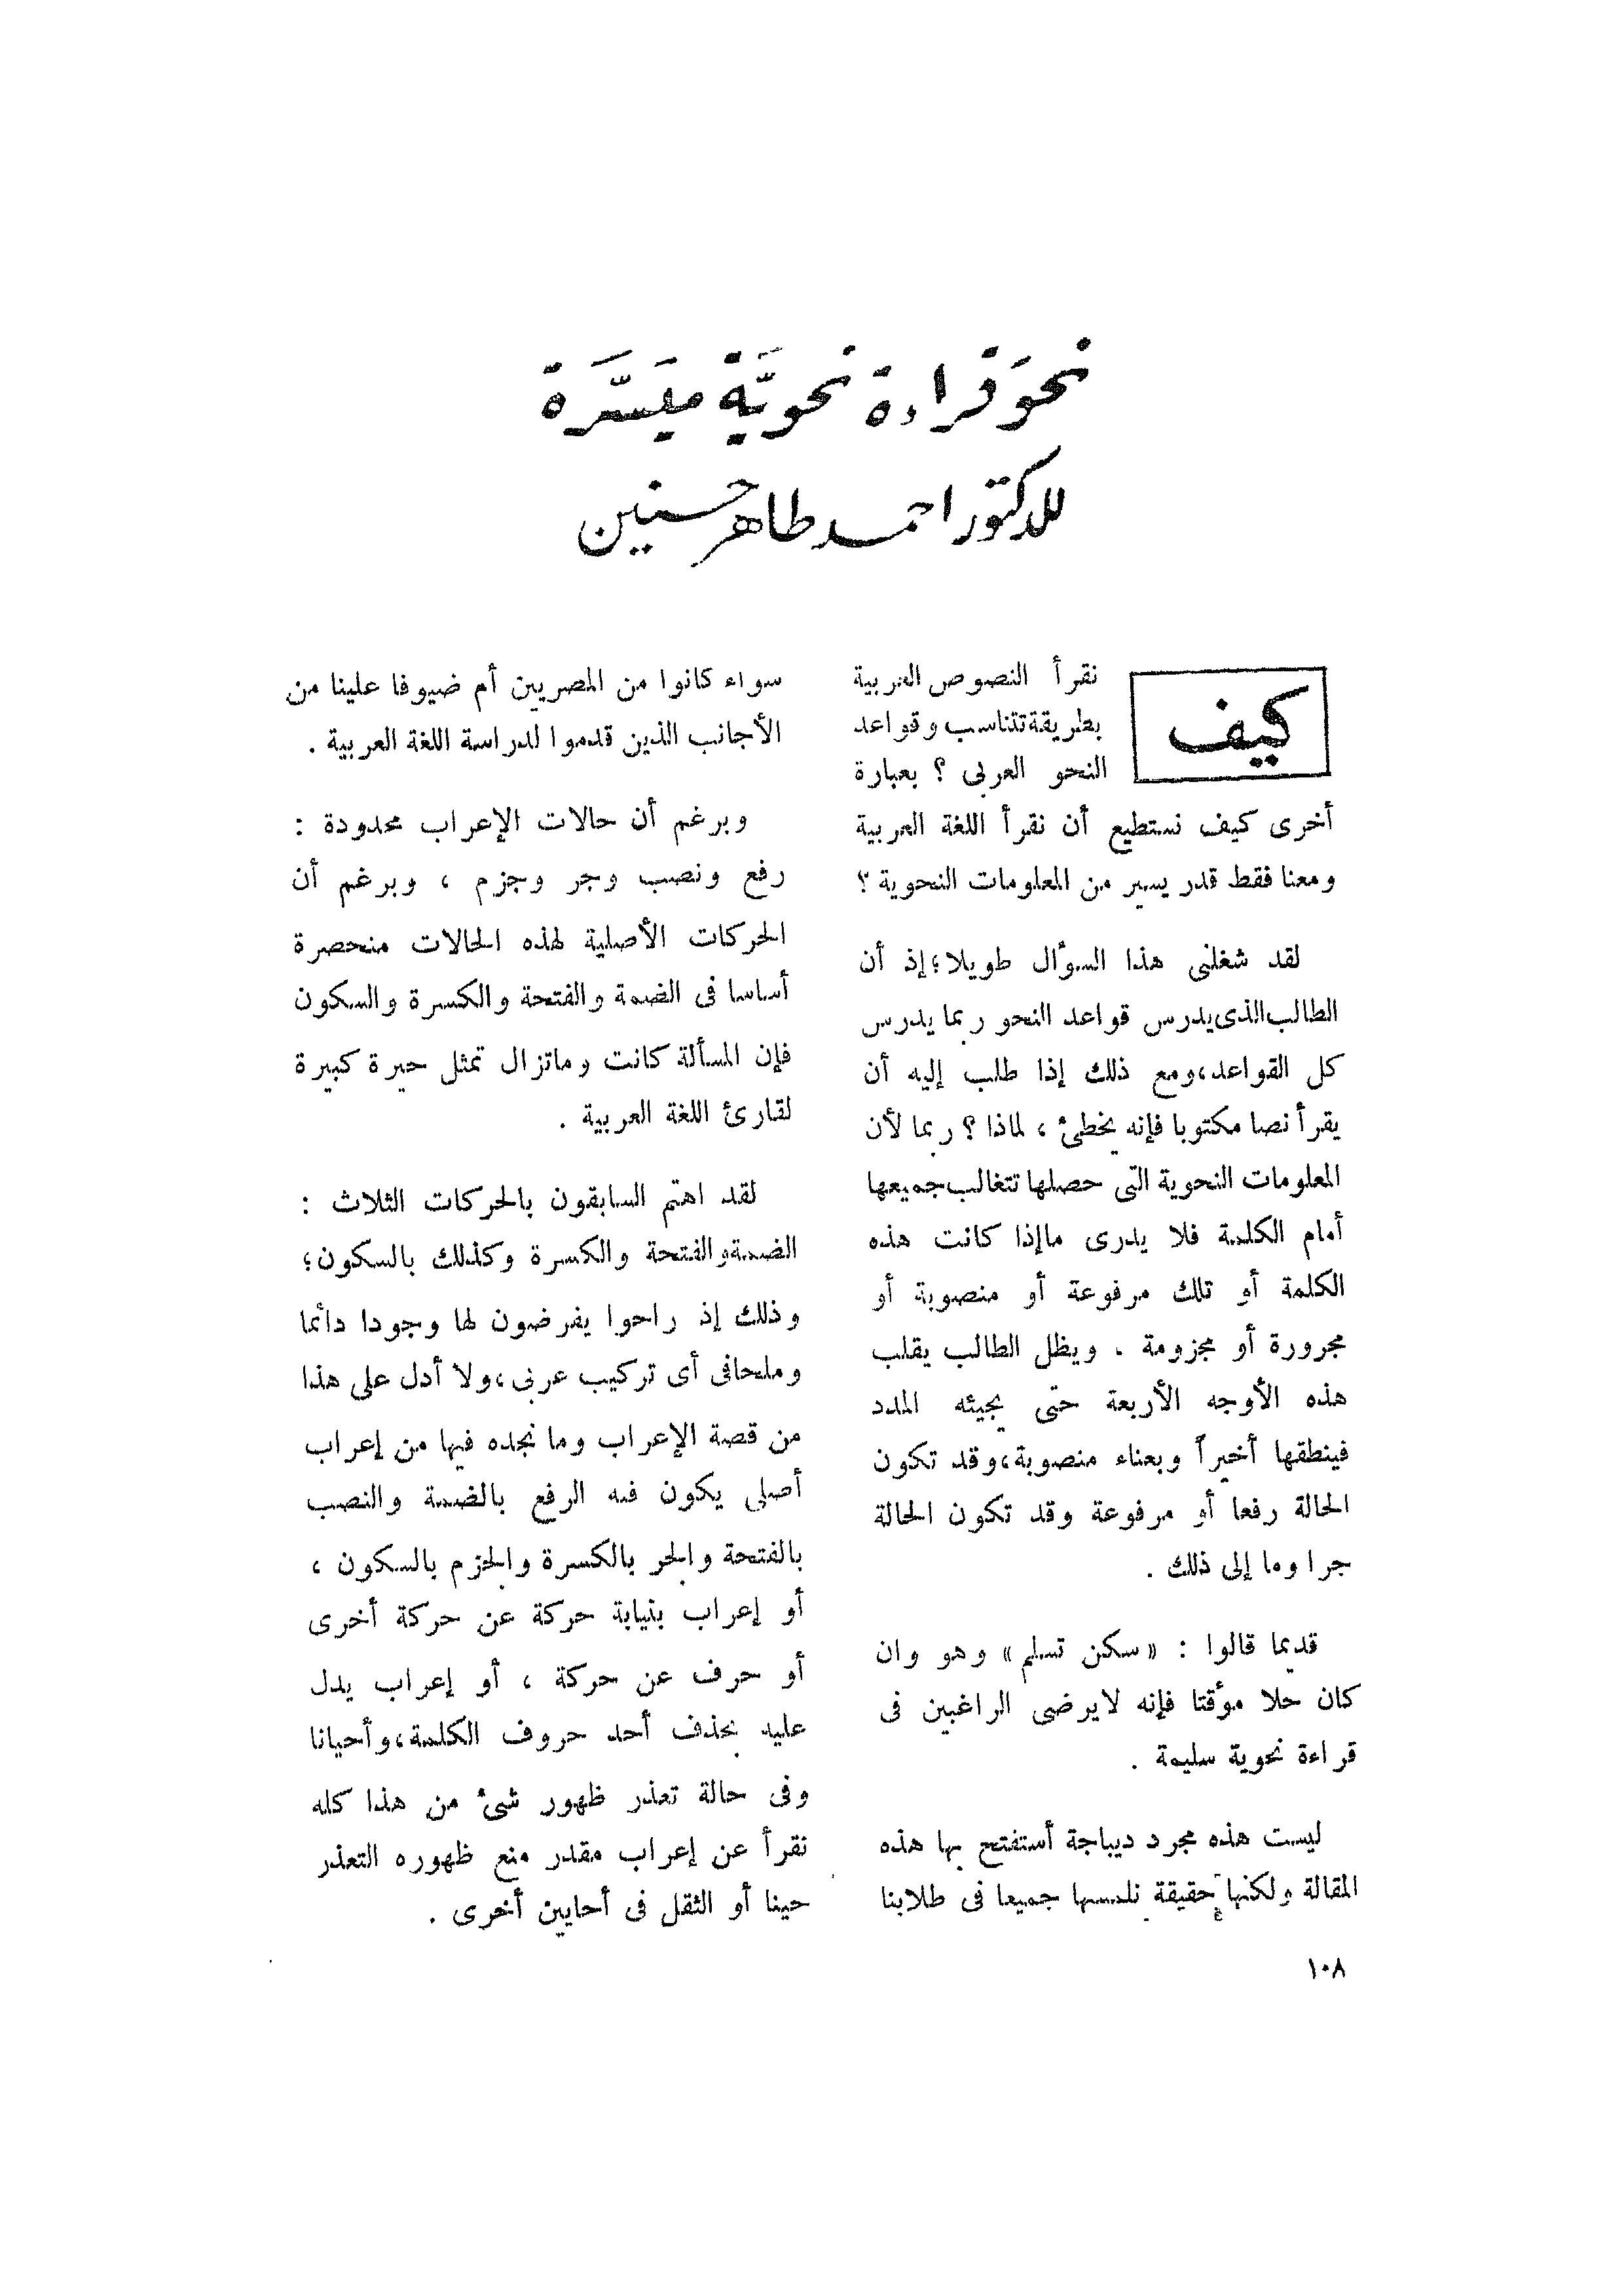 نحو قراءة نحويَّة ميسَّرة
للدكتور احمد طاهر حسنين
كيف
نقرأ النصوص العربية
بطريقة تتناسب وقواعد
النحو العربى ؟ بعبارة
أخرى كيف نستطيع أن نقرأ اللغة العربية
ومعنا فقط قدر يسير من المعلومات النحوية ؟
لقد شغلنى هذا السؤال طويلا ؛ إذ أن
الطالب الذى يدرس قواعد النحو ربما يدرس
كل القواعد ، ومع ذلك إذا طلب إليه أن
يقرأ نصا مكتوبا فإنه يخطئ ، لماذا ؟ ربما لأن
المعلومات النحوية التى حصلها تتغالب جميعها
أمام الكلمة فلا يدرى ماإذا كانت هذه
الكلمة أو تلك مرفوعة أو منصوبة أو
مجرورة أو مجزومة . ويظل الطالب يقلب
هذه الأوجه الأربعة حتى يجيئه المدد
فينطقها أخيراً وبعناء منصوبة ، وقد تكون
الحالة رفعا أو مرفوعة وقد تكون الحالة
جرا وما إلى ذلك .
قديما قالوا : «سكن تسلم» وهو وان
كان حلا مؤقتا فإنه لايرضى الراغبين فى
قراءة نحوية سليمة .
ليست هذه مجرد ديباجة أستفتح بها هذه
المقالة ولكنها حقيقة نلمسها جميعا فى طلابنا
سواء كانوا من المصريين أم ضيوفا علينا من
الأجانب الذين قدموا لدراسة اللغة العربية .
وبرغم أن حالات الإعراب محدودة :
رفع ونصب وجر وجزم ، وبرغم أن
الحركات الأصلية لهذه الحالات منحصرة
أساسا فى الضمة والفتحة والكسرة والسكون
فإن المسألة كانت وماتزال تمثل حيرة كبيرة
لقارئ اللغة العربية .
لقد اهتم السابقون بالحركات الثلاث :
الضمة والفتحة والكسرة وكذلك بالسكون ؛
وذلك إذ راحوا يفرضون لها وجودا دائما
وملحافى أى تركيب عربى ، ولا أدل على هذا
من قصة الإعراب وما نجده فيها من إعراب
أصلى يكون فيه الرفع بالضمة والنصب
بالفتحة والجر بالكسرة والجزم بالسكون ،
أو إعراب بنيابة حركة عن حركة أخرى
أو حرف عن حركة ، أو إعراب يدل
عليه بحذف أحد حروف الكلمة ، وأحيانا
وفى حالة تعذر ظهور شئ من هذا كله
نقرأ عن إعراب مقدر منع ظهوره التعذر
حينا أو الثقل فى أحايين أخرى .
١٠٨